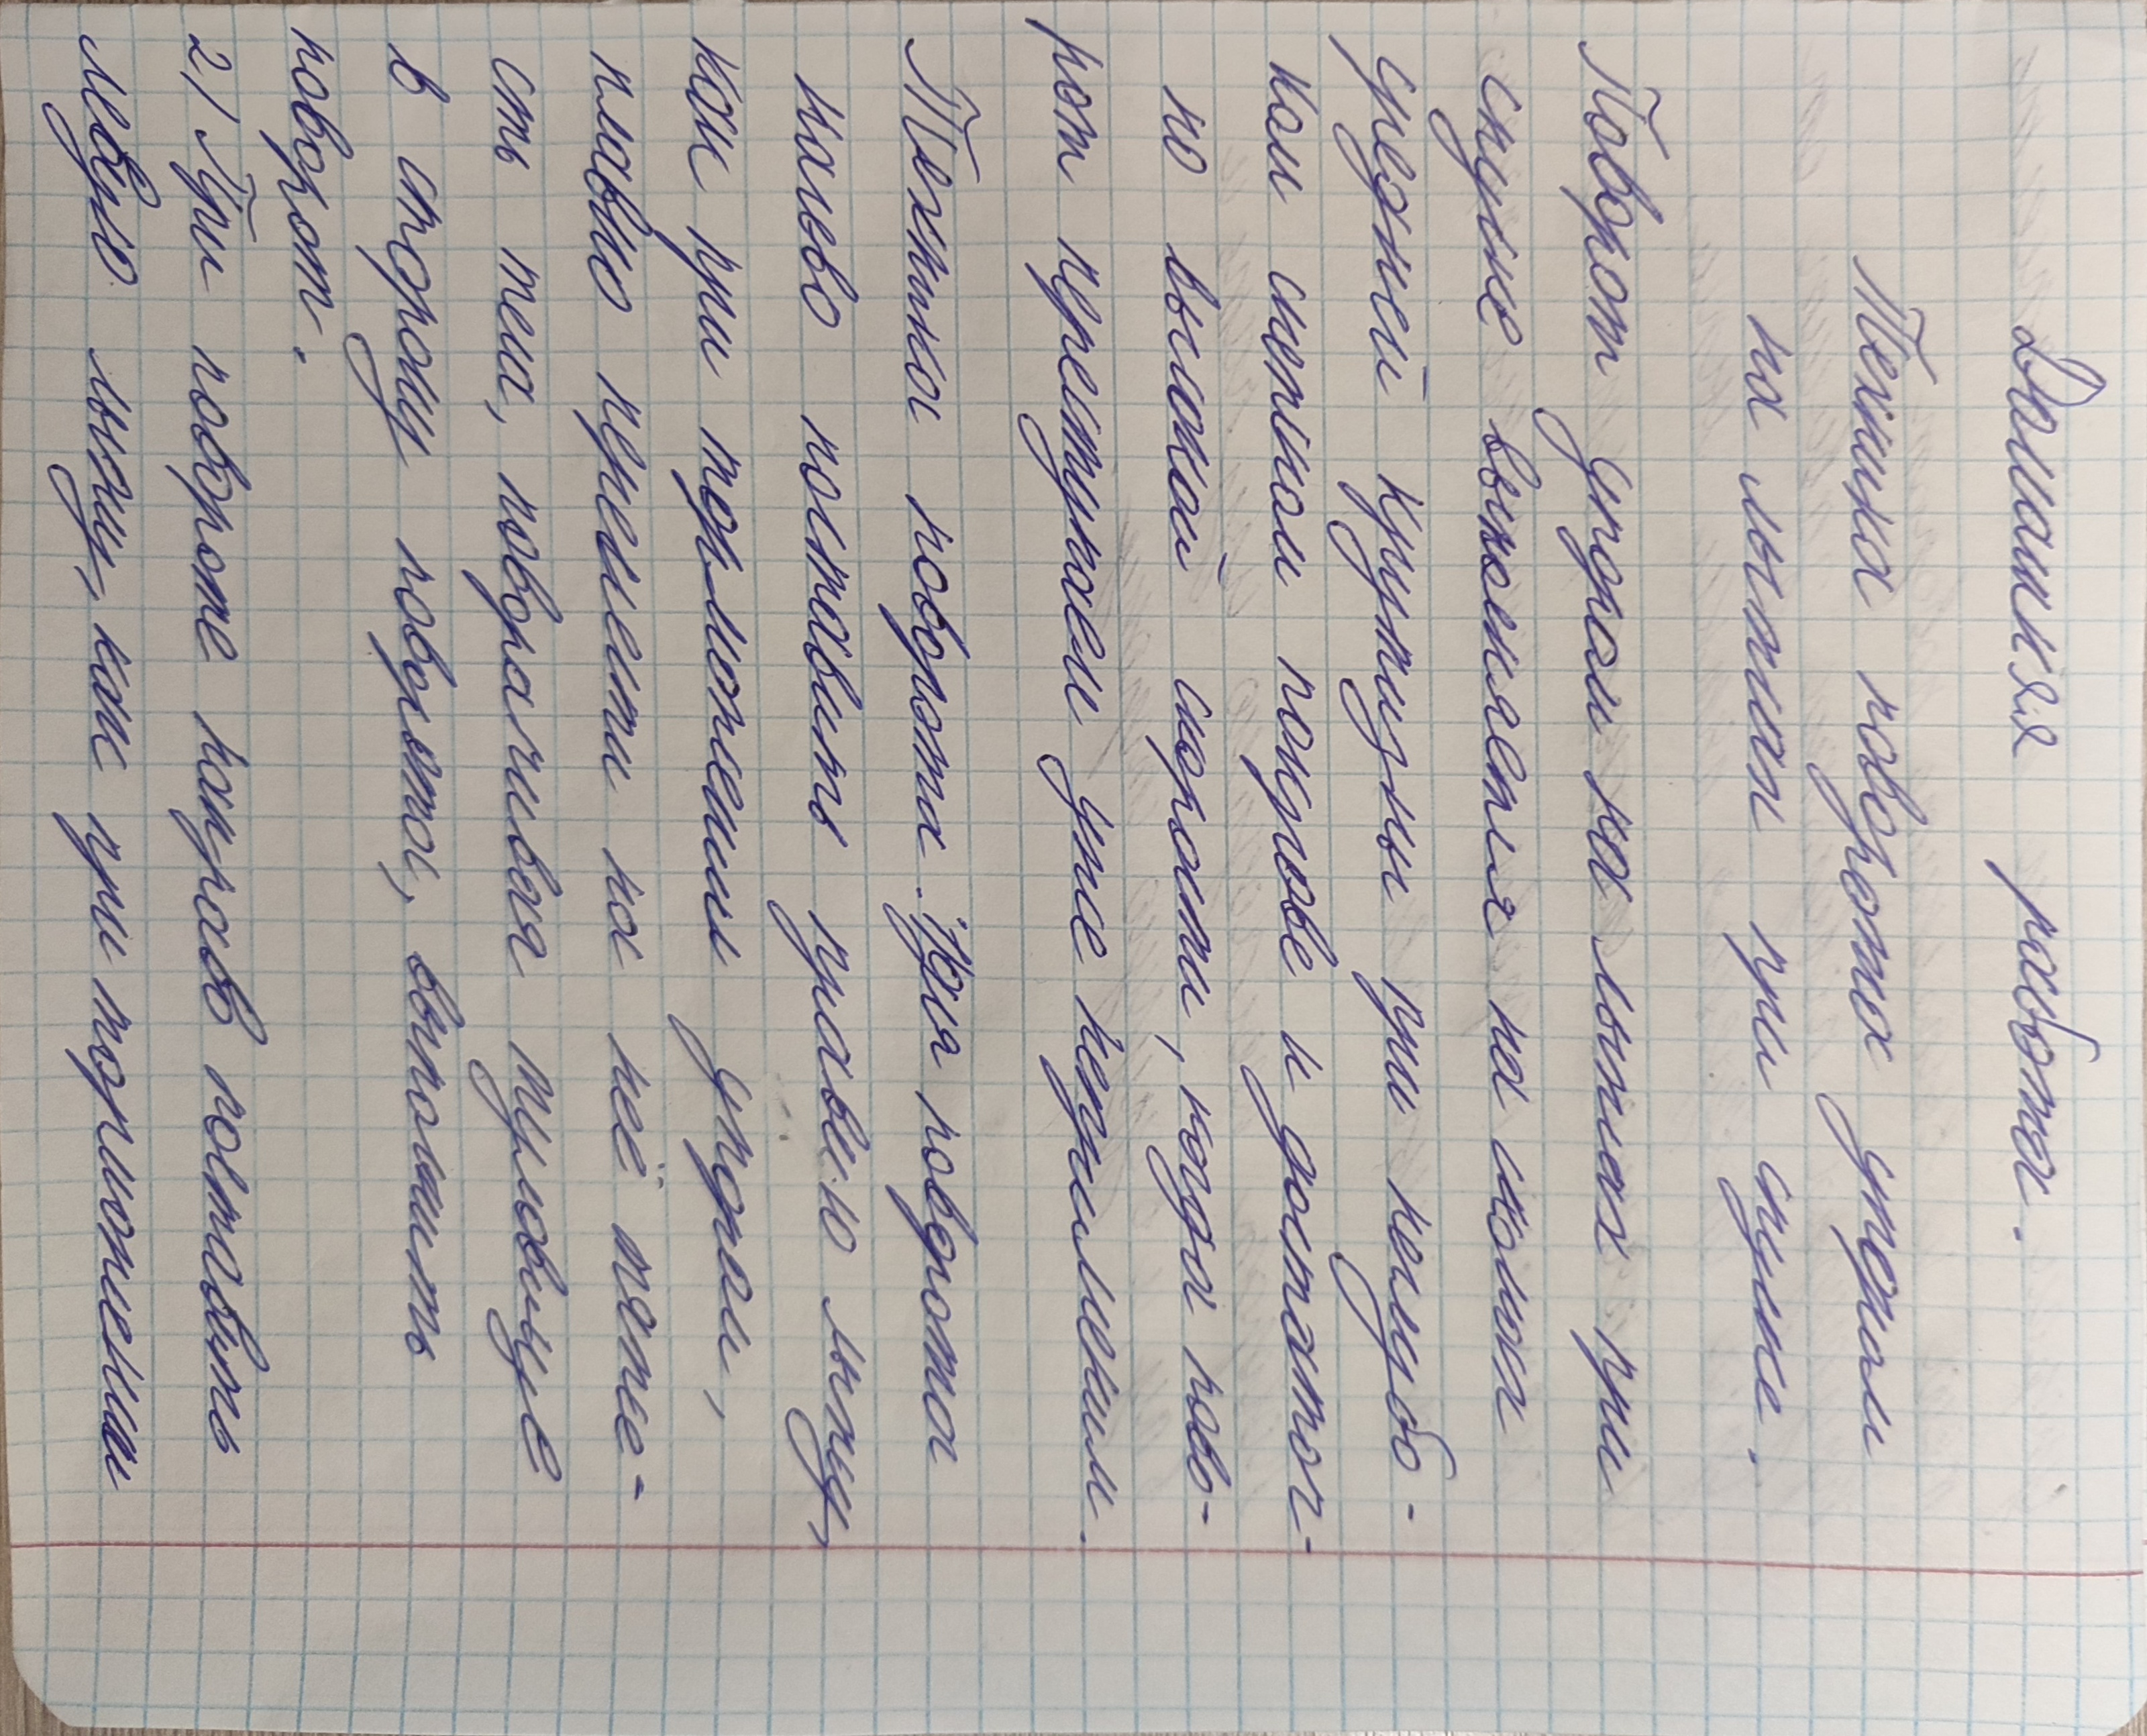 Домашняя работа.
Техника поворота упором
на лыжах при спуске.
Поворот упором на лыжах при
спуске выполняется на склонах
средней крутизны при неглубо-
ком снежном покрове и достаточ-
но высокой скорости, когда пово-
рот переступаем уже
Техника поворота. Для поворота
налево поставить правую лыжу,
как при торможении упором,
плавно переместить на неё тяже-
сть тела, поворачивая туловище
в сторону поворота, выполнить
поворот.
2) При повороте направо поставить
левую лыжу, как при торможении